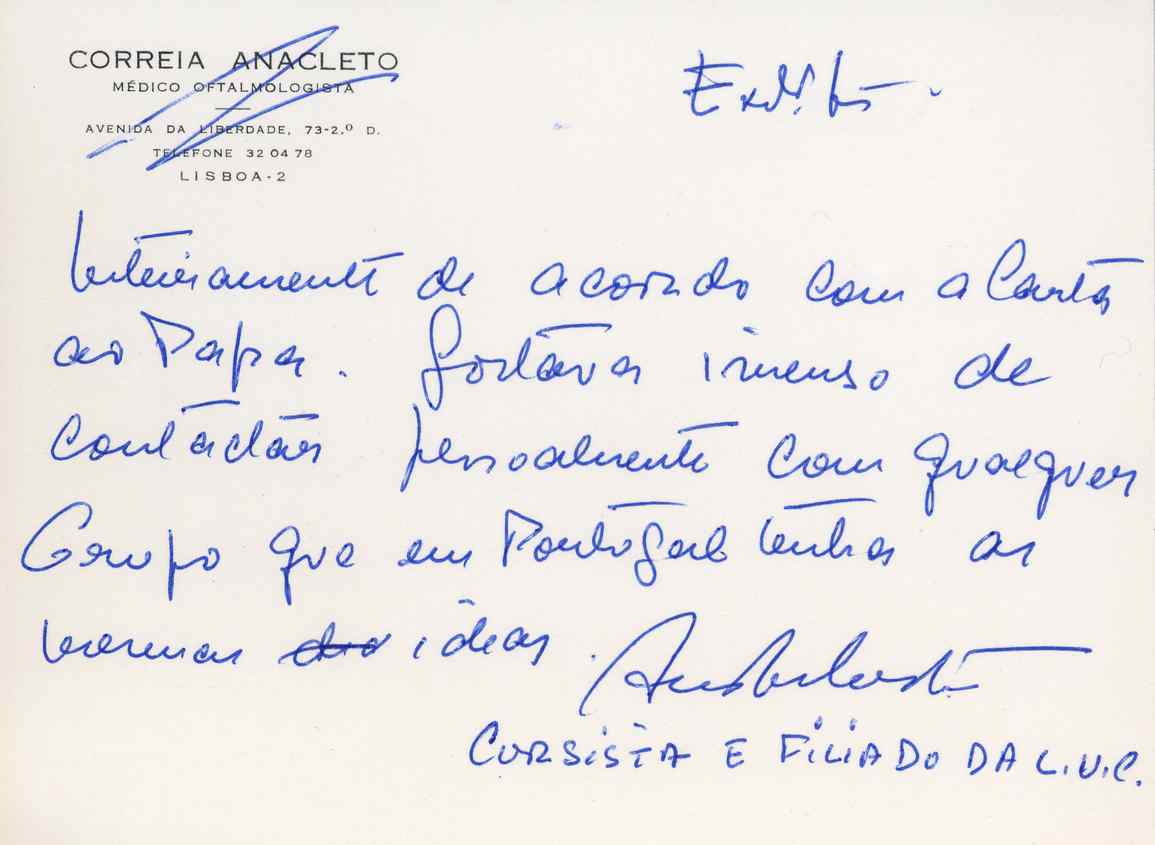 CORREIA ANACLETO
MÉDICO OFTALMOLOGISTA
AVENIDA DA LIBERDADE, 73-2.º D.
TELEFONE 32 04 78
LISBOA-2
Inteiramente de acordo com a Carta
ao Papa. Gostava imenso de
contactar pessoalmente com qualquer
Grupo que em Portugal tenha as
mesmas ideas.
CURSISTA E FILIADO DA L.U.C.